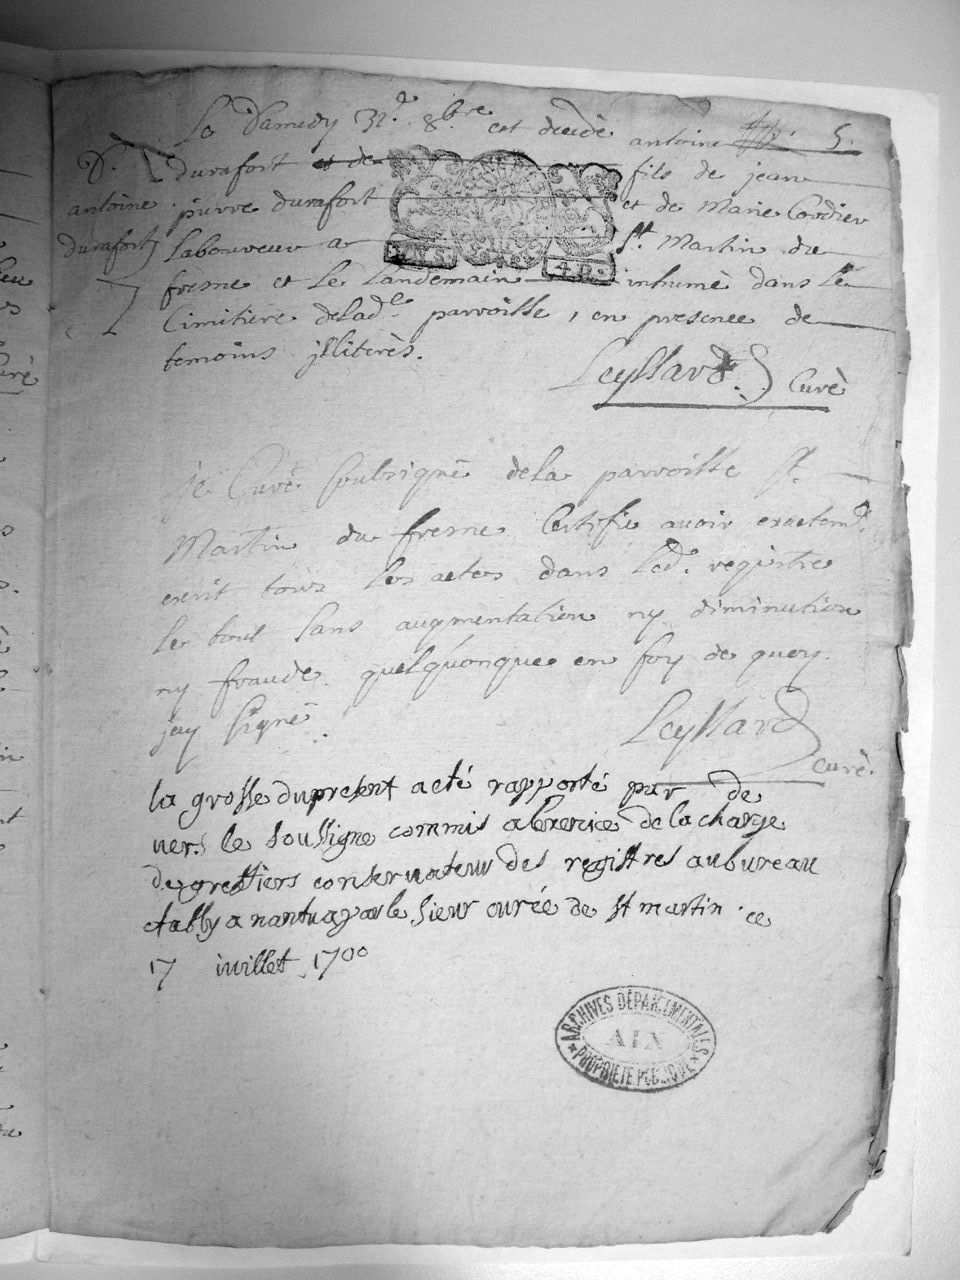 Le Samedy 31e 8bre est decedé antoine 5.
D. durafort et de fils de jean
antoine pierre durafort et de Marie Cordier
durafort laboureur a St Martin du
fresne et Le Landemain inhumé dans Le
Cimitiere delade parroisse, en presence de
temoins jlliterés.
Leyssard Curé
4 D.
je Curé soubsigné dela parroisse St.
Martin du fresne Certifie avoir exactemt
ecrit tous les actes dans Led. registre
le tout sans augmentation ny diminution
ny fraude quelquonque en foy de quoy
jay signé
Leyssard
curé.
la grosse dupresent acté rapporté par de
vers le soussigne commis alexercice de la charge
de greffiers conservateur des registres aubureau
etably a nantua par le sieur curée de st martin ce
17 iuillet 1700
ARCHIVES DÉPARTEMENTALES
AIN
PROPRIÉTÉ PUBLIQUE